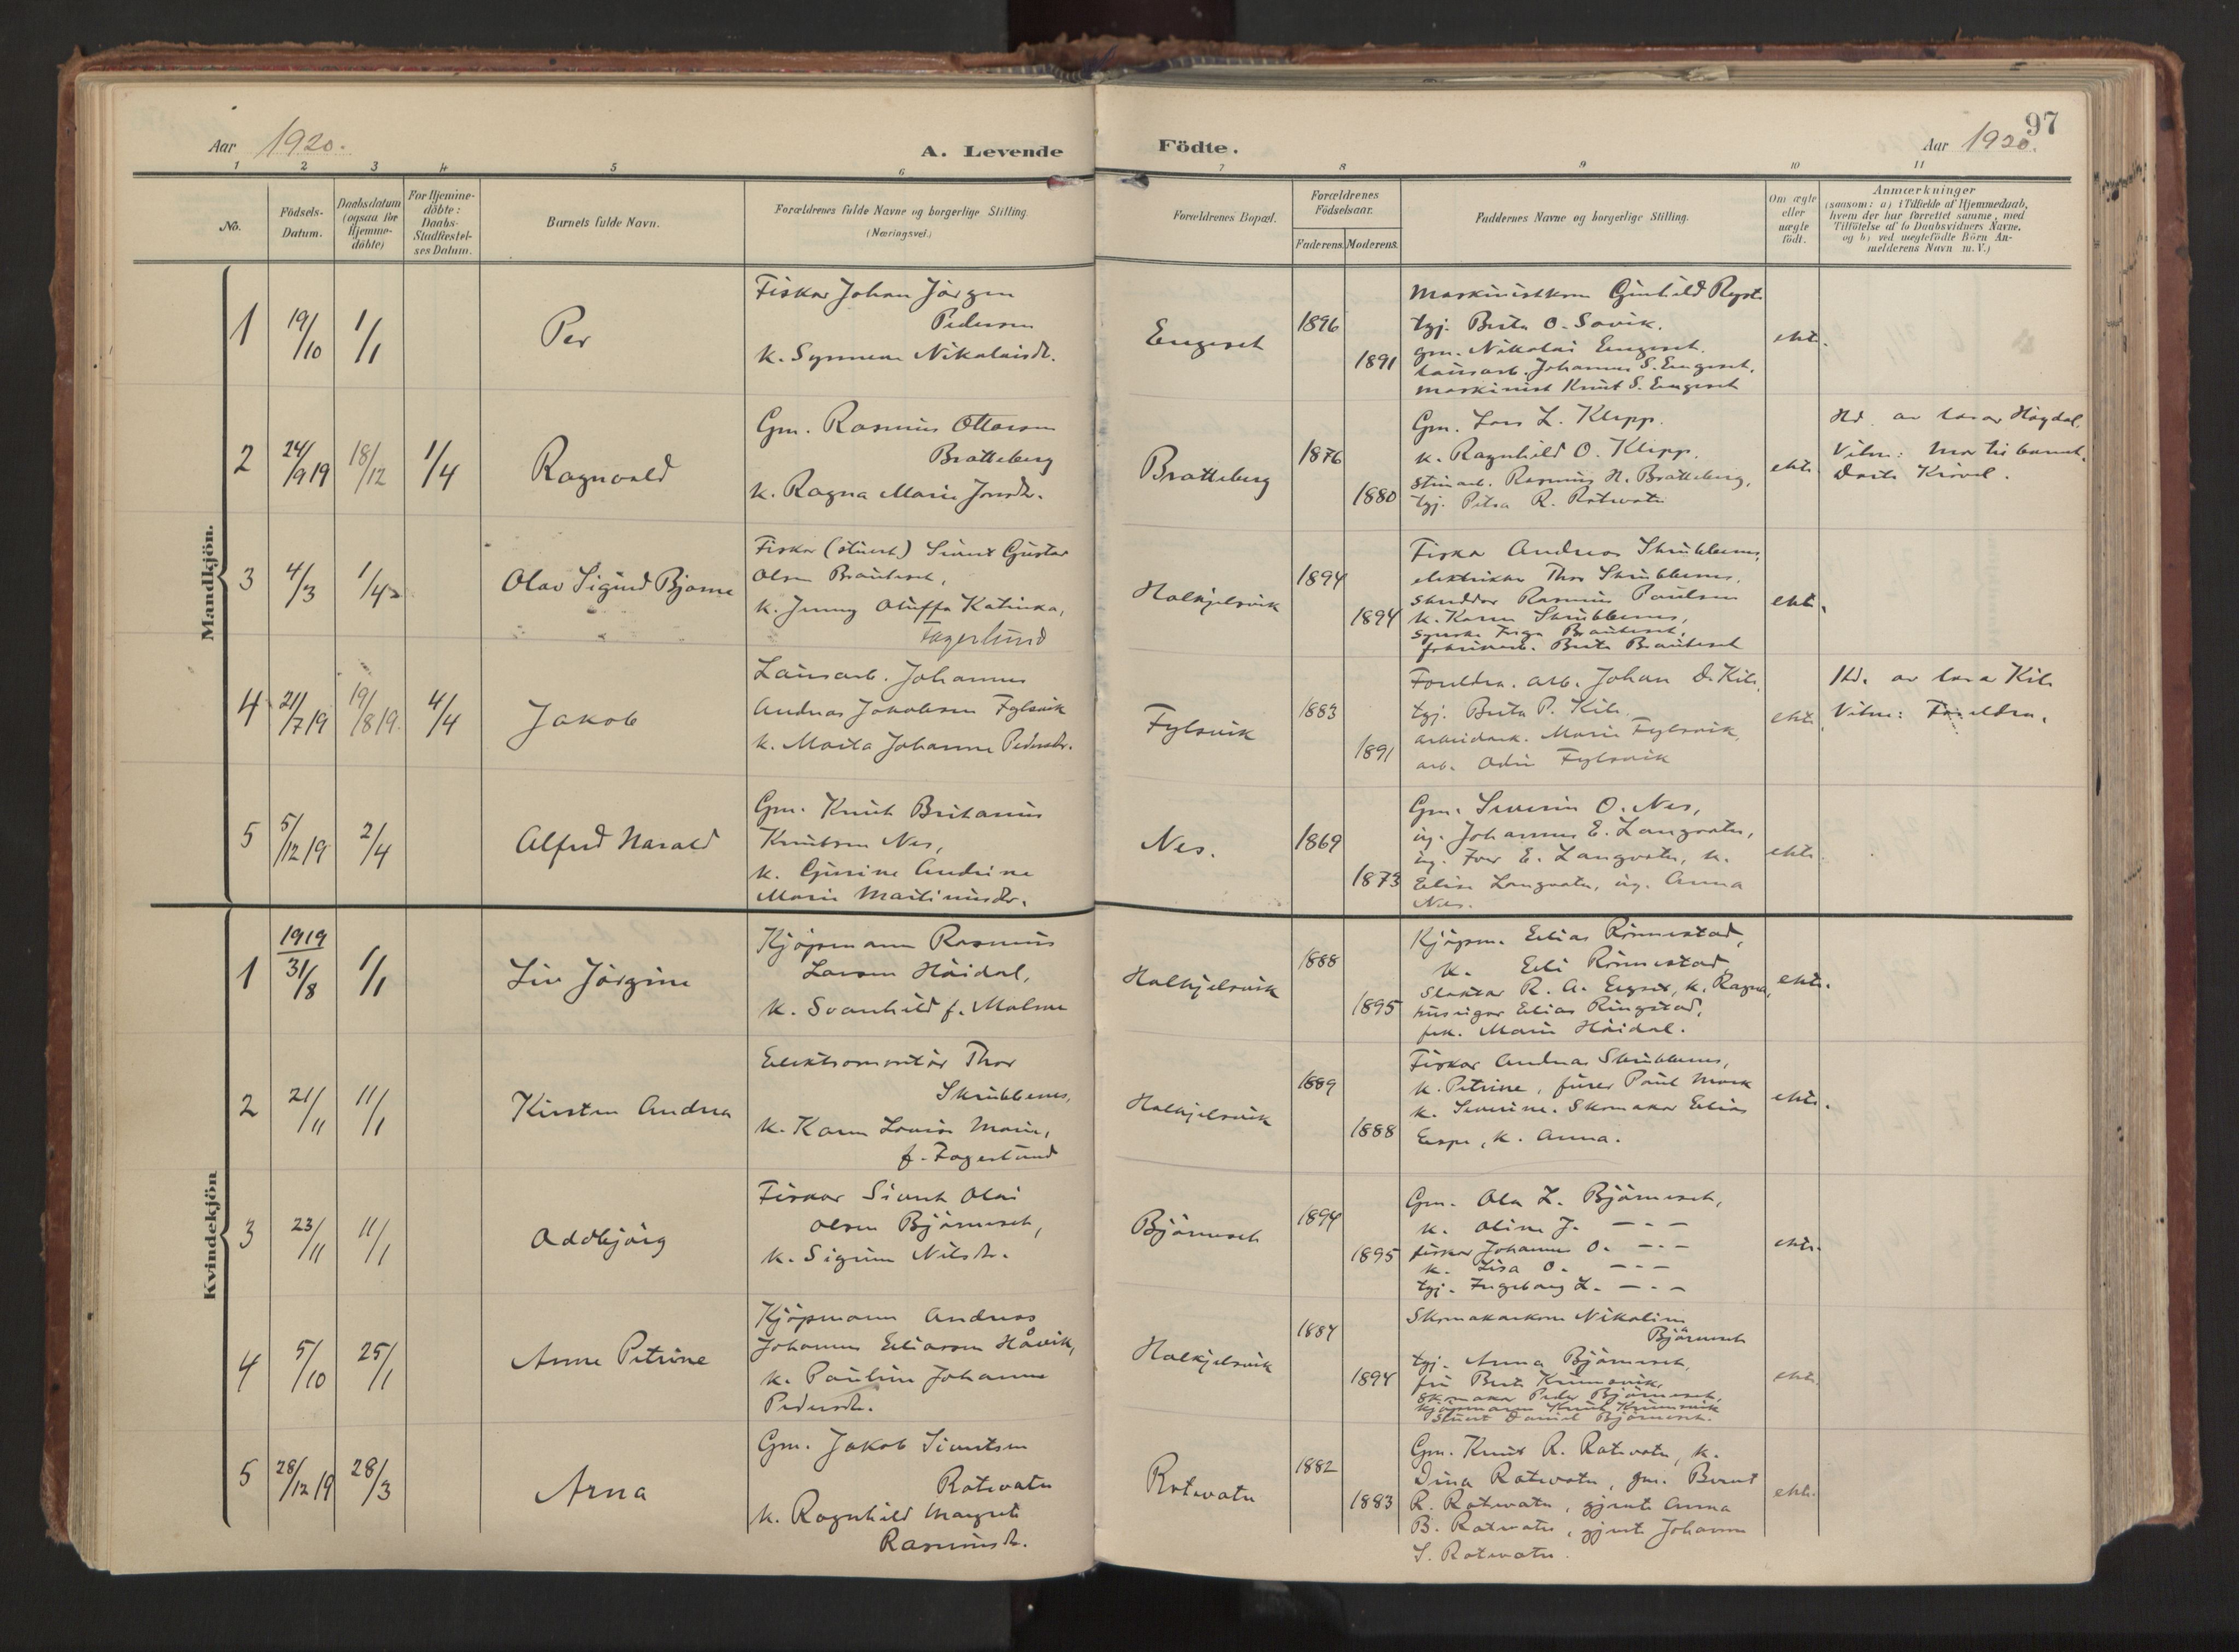 97
Aar 1920.
A. Levende
Födte.
Aar 1920.
1 2 3 4 5 6 7 8 9 10 11
No.
Födsels-
Datum.
Daabsdatum
(ogsaa for
Hjemme-
döbte)
For Hjemme-
döbte:
Daabs-
Stadfæstel-
ses Datum.
Barnets fulde Navn.
Forældrenes fulde Navne og borgerlige Stilling.
(Næringsvei.)
Forældrenes Bopæl.
Forældrenes
Födselsaar.
Faderens. Moderens.
Faddernes Navne og borgerlige Stilling.
Om ægte
eller
uægte
födt.
Anmærkninger
(saasom: a) i Tilfælde af Hjemmedaab,
hvem der har forrettet samme, med
Tilföielse af to Daabsvidners Navne,
og b) ved uægtefödte Börn An-
melderens Navn m. V.)
Mandkjön.
1 19/10 1/1 Per
Fiskar Johan Jörgen
Pedersen
k. Synneve Nikolaisdr.
Engeset 1896 1891
tgj. Brita O. Sovik.
gm. Nikolai Engeset.
Johannes S. Engeset,
maskinist Knut S. Engeset
ekte.
2 24/9 19 18/12 1/4 Ragnvald
Gm. Rasmus Ottarson
Bratteberg
k. Ragna Marie Jonsdr.
Bratteberg 1876 1880
Gm. Lars L. Klepp.
k. Ragnhild O. Klepp.
Rasmus N. Bratteberg,
tgj. R. Rotevatn
ekte
Hd. av
Vitne: Mor til barnet.
3 4/3 1/4 Olav Sigurd Bjarne
Fiskar (stuert) Sivert Gustav
Olsen Brauteset,
k. Jenny Oluffa Katinka,
Fagerlund
Halkjelsvik 1894 1894
Fiskar Andreas Skrubbenes,
elektrikar Thor Skrubbenes,
skreddar Rasmus Paulsen
k. Karen Skrubbenes,
Brauteset,
Brita Brauteset
ekte.
4 21/7 19 19/8 19. 4/4 Jakob
Lausarb. Johannes
Andreas Jakobsen Fylsvik
k. Marta Johanne Pedersdr.
Fylsvik 1883 1891
Foreldra. arb. Johan D. Kile,
tgj. Brita P. Kile.
Marie Fylsvik,
arb. Odin Fylsvik
ekte
Hd. av Kile
Vitne: Foreldra.
5 5/12 19 2/4 Alfred Harald
Gm. Knut Britanus
Knutsen Nes,
k. Gurine Andrine
Marie Martinusdr.
Nes. 1869 1873
Gm. Severin O. Nes,
ug. Johannes E. Langvatn,
ug. Iver E. Langvatn, k.
Elise Langvatn, ug. Anna
Nes.
ekte.
Kvindekjön
1 1919 31/8 1/1 Liv Jörgine
Kjöpmann Rasmus
Larsen Höidal,
k. Svanhild f. Malme
Halkjelsvik 1888 1895
Kjöpm. Elias Rönnestad,
k. Eli Rönnestad
Slaktar R. A. k. Ragna,
huseigar Elias Ringstad,
frk. Marie Höidal.
ekte.
2 21/11 11/1 Kirsten Andrea
Elektromontör Thor
Skrubbenes,
k. Karen Lovise Marie,
f. Fagerlund
Halkjelsvik 1889 1888
Fiskar Andreas Skrubbenes,
k. Petrine, furer Paul Mork
k. Severine. Skomakar Elias
Espe, k. Anna.
ekte.
3 23/11 11/1 Oddbjörg
Fiskar Sivert Olai
Olsen Björneset,
k. Sigrun Nilsdr.
Björneset 1894 1895
Gm. Ola L. Björneset,
k. Oline J. — - —
fiskar Johannes O. — - —
k. Lisa O. — - —
tgj. Ingeborg L. — - —
ekte.
4 5/10 25/1 Anne Petrine
Kjöpmann Andreas
Johannes Eliassen Håvik,
k. Pauline Johanne
Pedersdr.
Halkjelsvik 1884 1894
Skomakarkona Nikoline
Björneset
tgj. Anna Björneset,
fru Berte Krumsvik,
skomakar Peder Björneset,
kjöpmann Knut Krumsvik
stuert Daniel Björneset.
ekte.
5 28/12 19 28/3 Arna
Gm. Jakob Sivertsen
Rotevatn
k. Ragnhild Margrete
Rasmusdr.
Rotevatn 1882 1883
Gm. Knut R. Rotevatn, k.
Dina Rotevatn, gm. Bernt
R. Rotevatn, gjente Anna
B. Rotevatn, gjente Johanne
S. Rotevatn.
ekte.